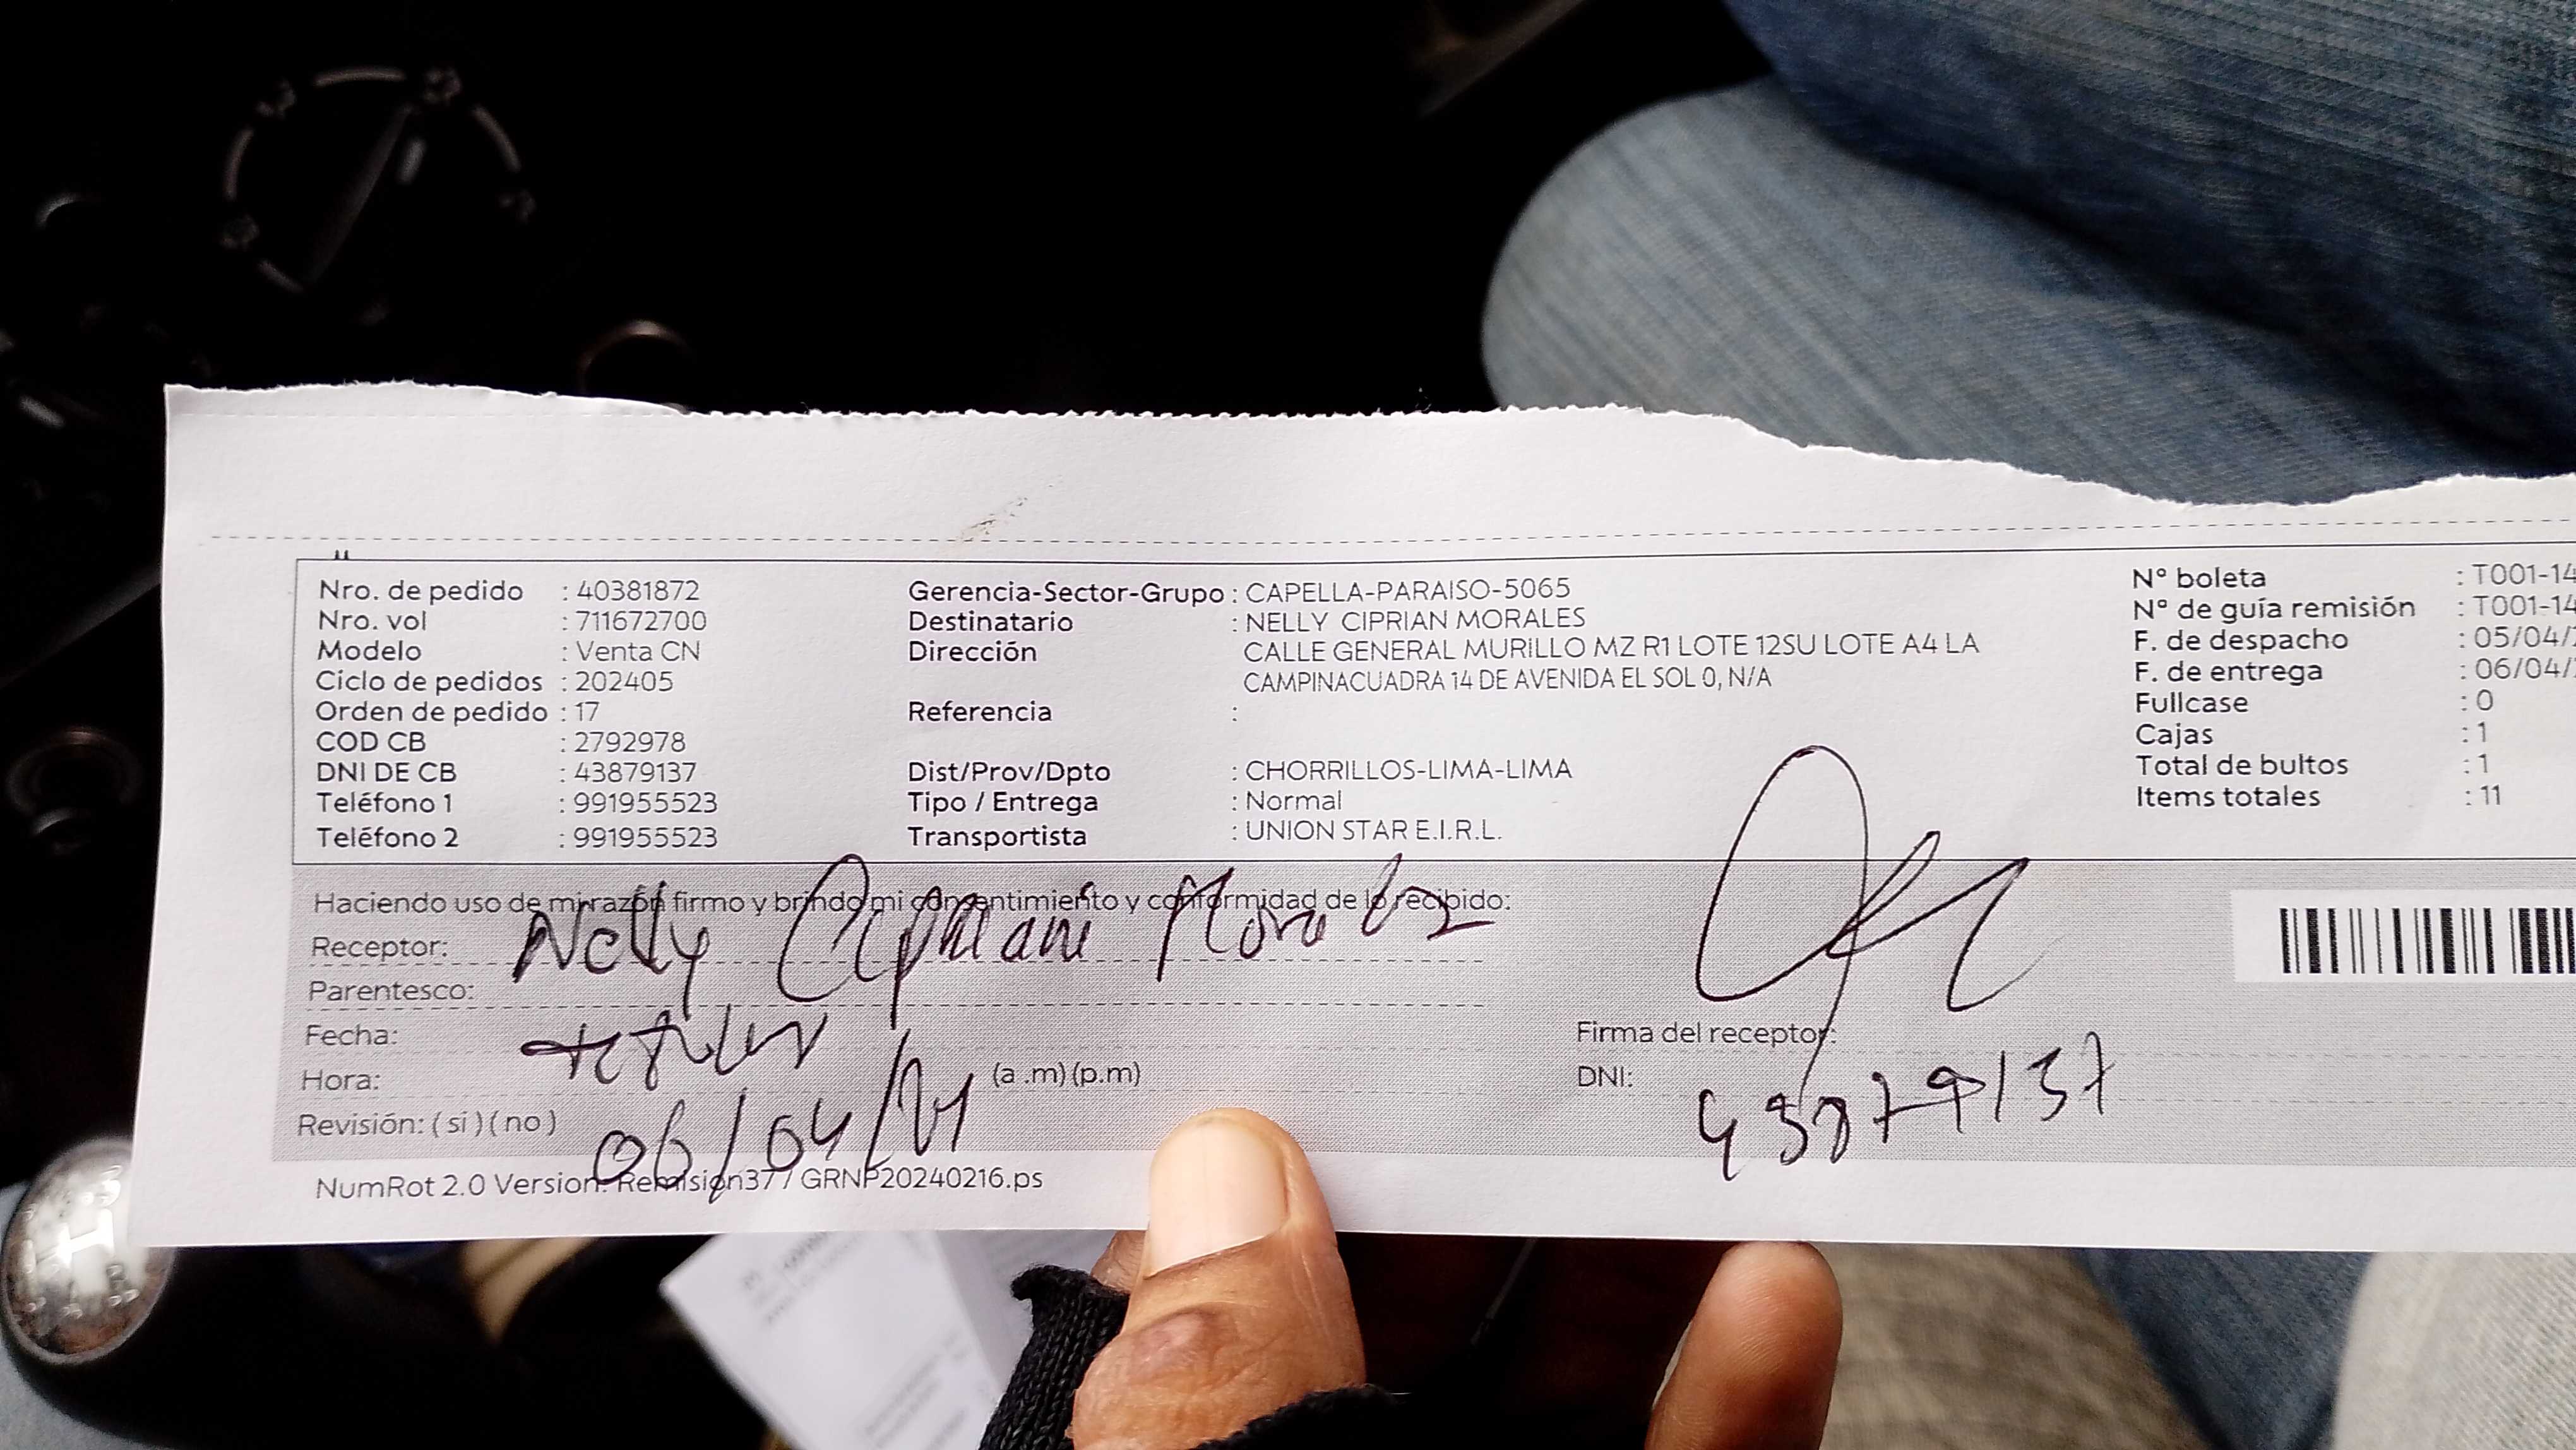 Nro. de pedido : 40381872
Nro. vol : 711672700
Modelo : Venta CN
Ciclo de pedidos : 202405
Orden de pedido : 17
COD CB : 2792978
DNI DE CB : 43879137
Teléfono 1 : 991955523
Teléfono 2 : 991955523
Gerencia-Sector-Grupo : CAPELLA-PARAISO-5065
Destinatario : NELLY CIPRIAN MORALES
Dirección CALLE GENERAL MURILLO MZ R1 LOTE 12SU LOTE A4 LA
CAMPINACUADRA 14 DE AVENIDA EL SOL 0, N/A
Referencia :
Dist/Prov/Dpto : CHORRILLOS-LIMA-LIMA
Tipo / Entrega : Normal
Transportista : UNION STAR E.I.R.L.
Nº boleta : T001-14
Nº de guía remisión : T001-14
F. de despacho : 05/04/
F. de entrega : 06/04/
Fullcase : 0
Cajas : 1
Total de bultos : 1
Items totales : 11
Haciendo uso de mi razón firmo y brindo mi consentimiento y conformidad de lo recibido:
Receptor: Nelly Cipriani Morales
Parentesco:
Fecha:
Hora: (a .m) (p.m)
Revisión: ( si ) ( no ) 06/04/24
Firma del receptor:
DNI: 43879137
NumRot 2.0 Version: Remision37 / GRNP20240216.ps